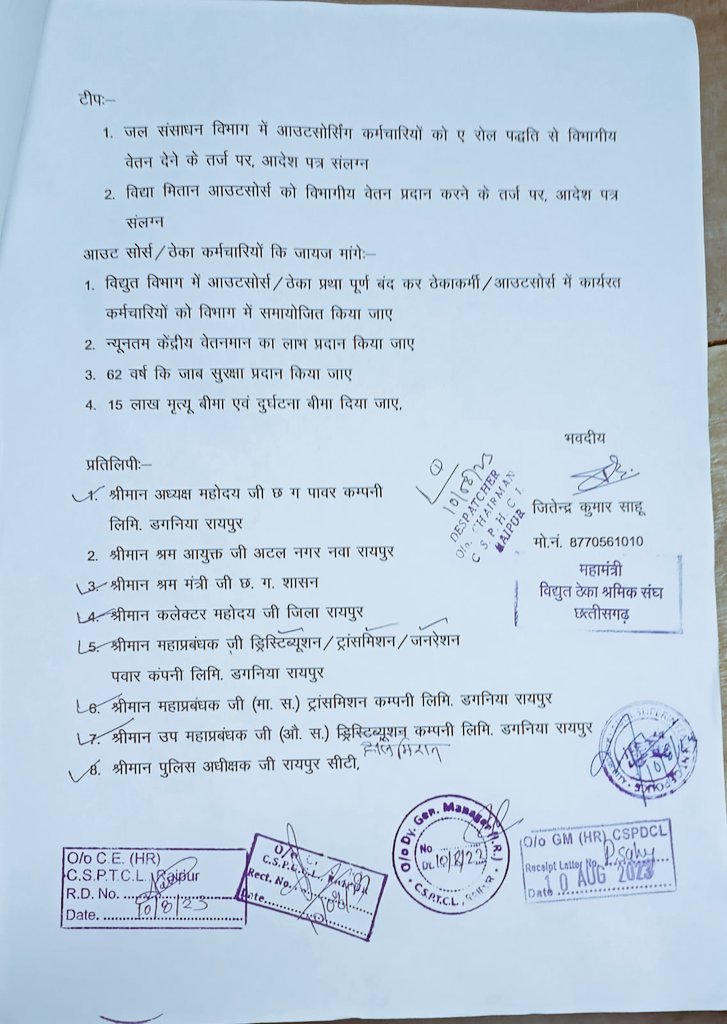 टीपः–
1. जल संसाधन विभाग में आउटसोर्सिंग कर्मचारियों को ए रोल पद्धति से विभागीय
वेतन देने के तर्ज पर, आदेश पत्र संलग्न
2. विद्या मितान आउटसोर्स को विभागीय वेतन प्रदान करने के तर्ज पर, आदेश पत्र
संलग्न
आउट सोर्स/ठेका कर्मचारियों कि जायज मांगेः–
1. विद्युत विभाग में आउटसोर्स/ठेका प्रथा पूर्ण बंद कर ठेकाकर्मी/आउटसोर्स में कार्यरत
कर्मचारियों को विभाग में समायोजित किया जाए
2. न्यूनतम केंद्रीय वेतनमान का लाभ प्रदान किया जाए
3. 62 वर्ष कि जाब सुरक्षा प्रदान किया जाए
4. 15 लाख मृत्यू बीमा एवं दुर्घटना बीमा दिया जाए,
भवदीय
जितेन्द्र कुमार साहू
मो.नं. 8770561010
महामंत्री
विद्युत ठेका श्रमिक संघ
छत्तीसगढ़
प्रतिलिपीः–
1. श्रीमान अध्यक्ष महोदय जी छ ग पावर कम्पनी
लिमि. डगनिया रायपुर
2. श्रीमान श्रम आयुक्त जी अटल नगर नवा रायपुर
3. श्रीमान श्रम मंत्री जी छ. ग. शासन
4. श्रीमान कलेक्टर महोदय जी जिला रायपुर
5. श्रीमान महाप्रबंधक जी ड्रिस्टिब्यूशन/ट्रांसमिशन/जनरेशन
पवार कंपनी लिमि. डगनिया रायपुर
6. श्रीमान महाप्रबंधक जी (मा. स.) ट्रांसमिशन कम्पनी लिमि. डगनिया रायपुर
7. श्रीमान उप महाप्रबंधक जी (औ. स.) ड्रिस्टिब्यूशन कम्पनी लिमि. डगनिया रायपुर
8. श्रीमान पुलिस अधीक्षक जी रायपुर सीटी,
1
10/08/23
DESPATCHER
O/o. CHAIRMAN
C S P H C L
RAIPUR
O/o C.E. (HR)
C.S.P.T.C.L. Raipur
R.D. No.
Date. 10/8/23
O/o
Rect. No.
Date
O/o Dy. Gen. Manager (H.R.)
No
Dt. 10/8/23
C.S.P.T.C.L., RAIPUR
O/o GM (HR) CSPDCL
Receipt Latter No.
Date 10 AUG 2023